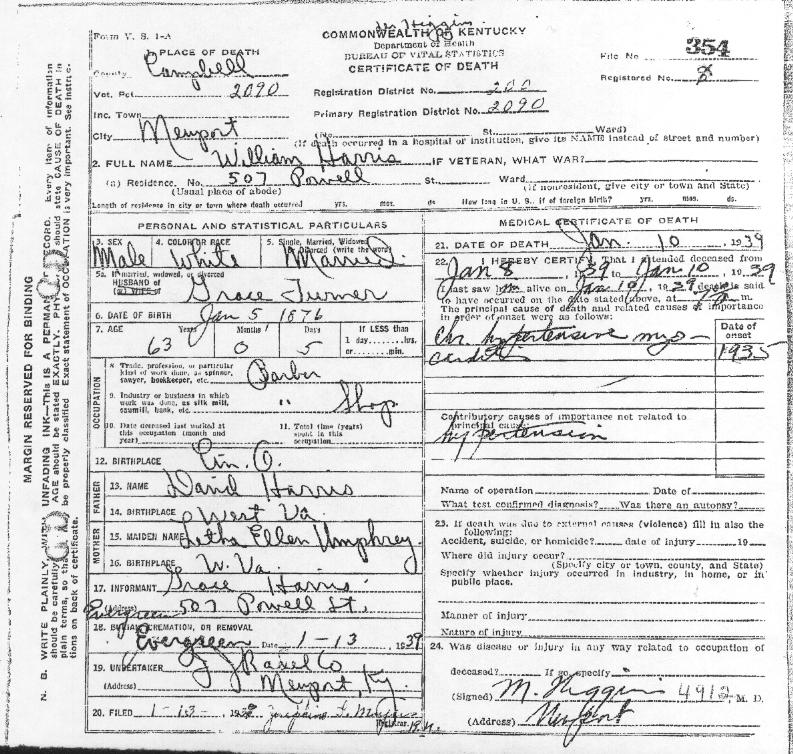 Form V. S. 1-A
Higgins
COMMONWEALTH OF KENTUCKY
Department of Health
BUREAU OF VITAL STATISTICS
CERTIFICATE OF DEATH
File No. 354
Registered No.
PLACE OF DEATH
County Campbell
Vot. Pct. 2090
Registration District No. 200
Primary Registration District No. 2090
Inc. Town
City Newport
(No. St. Ward)
(If death occurred in a hospital or institution, give its NAME instead of street and number)
2. FULL NAME William Harris IF VETERAN, WHAT WAR?
(a) Residence. No. 507 Powell St. Ward
(Usual place of abode) (If nonresident, give city or town and State)
Length of residence in city or town where death occurred yrs. mos. ds. How long in U. S., if of foreign birth? yrs. mos. ds.
PERSONAL AND STATISTICAL PARTICULARS
3. SEX 4. COLOR OR RACE 5. Single, Married, Widowed, or Divorced (write the word)
Male White Married
5a. If married, widowed, or divorced
HUSBAND of
(or) WIFE of Grace Turner
6. DATE OF BIRTH Jan 5 1876
7. AGE Years Months Days If LESS than
63 0 5 1 day........hrs.
or........min.
OCCUPATION
8. Trade, profession, or particular kind of work done, as spinner, sawyer, bookkeeper, etc. Barber
9. Industry or business in which work was done, as silk mill, sawmill, bank, etc. " Shop
10. Date deceased last worked at this occupation (month and year)
11. Total time (years) spent in this occupation
12. BIRTHPLACE Cin. O.
FATHER
13. NAME David Harris
14. BIRTHPLACE West Va
MOTHER
15. MAIDEN NAME Letha Ellen Umphrey
16. BIRTHPLACE W. Va.
17. INFORMANT Grace Harris
(Address) 507 Powell St.
Evergreen
18. BURIAL, CREMATION, OR REMOVAL
Evergreen Date 1-13 1939
19. UNDERTAKER
(Address) Newport, Ky.
20. FILED 1-13- 1939
Registrar.
MEDICAL CERTIFICATE OF DEATH
21. DATE OF DEATH Jan. 10 1939
22. I HEREBY CERTIFY, That I attended deceased from
Jan 8, 1939 to Jan 10, 1939
I last saw him alive on Jan 10, 1939 death is said
to have occurred on the date stated above, at m.
The principal cause of death and related causes of importance
in order of onset were as follows:
Date of onset
Chr. hypertensive myo-
carditis 1935
Contributory causes of importance not related to
principal cause:
hypertension
Name of operation Date of
What test confirmed diagnosis? Was there an autopsy?
23. If death was due to external causes (violence) fill in also the
following:
Accident, suicide, or homicide? date of injury 19
Where did injury occur?
(Specify city or town, county, and State)
Specify whether injury occurred in industry, in home, or in
public place.
Manner of injury
Nature of injury
24. Was disease or injury in any way related to occupation of
deceased? If so, specify
(Signed) M. Higgins 4912 M. D.
(Address) Newport
MARGIN RESERVED FOR BINDING
N. B. WRITE PLAINLY, WITH UNFADING INK—THIS IS A PERMANENT RECORD. Every item of information
should be carefully AGE should be stated EXACTLY. should state CAUSE OF DEATH in
plain terms, so that be properly classified. Exact statement of OCCUPATION is very important. See instruc-
tions on back of certificate.